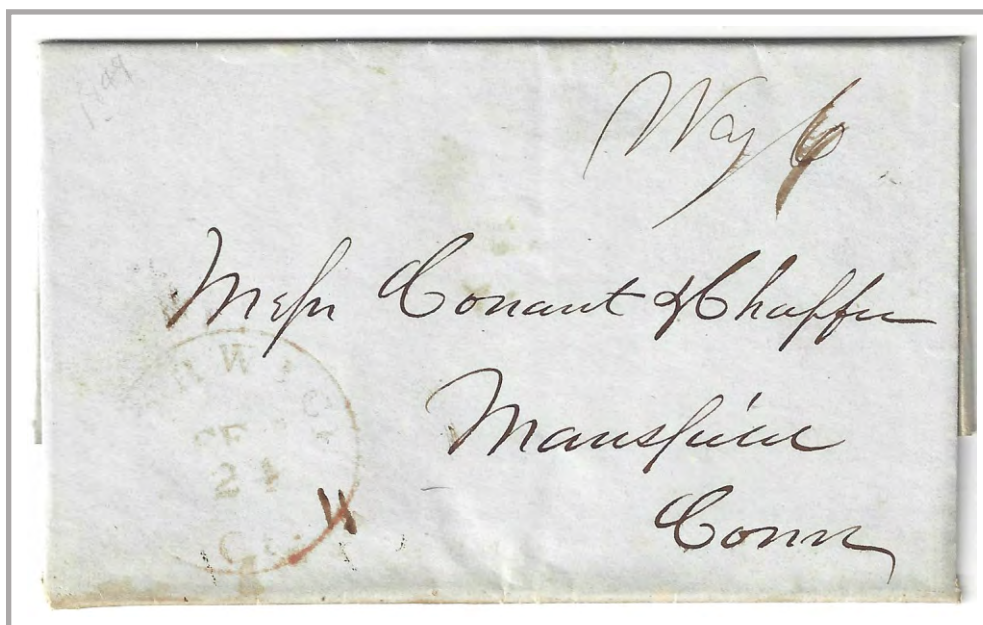 1849
Way 6
Messr Conant & Chaffee
Mansfield
Conn
24